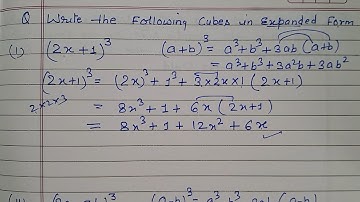 Q Write the Following Cubes in Expanded Form
(i) (2x+1)³ (a+b)³ = a³+b³+3ab(a+b)
= a³+b³+3a²b+3ab²
(2x+1)³ = (2x)³+1³+3×2x×1(2x+1)
2×2×3
= 8x³+1+6x(2x+1)
= 8x³+1+12x²+6x